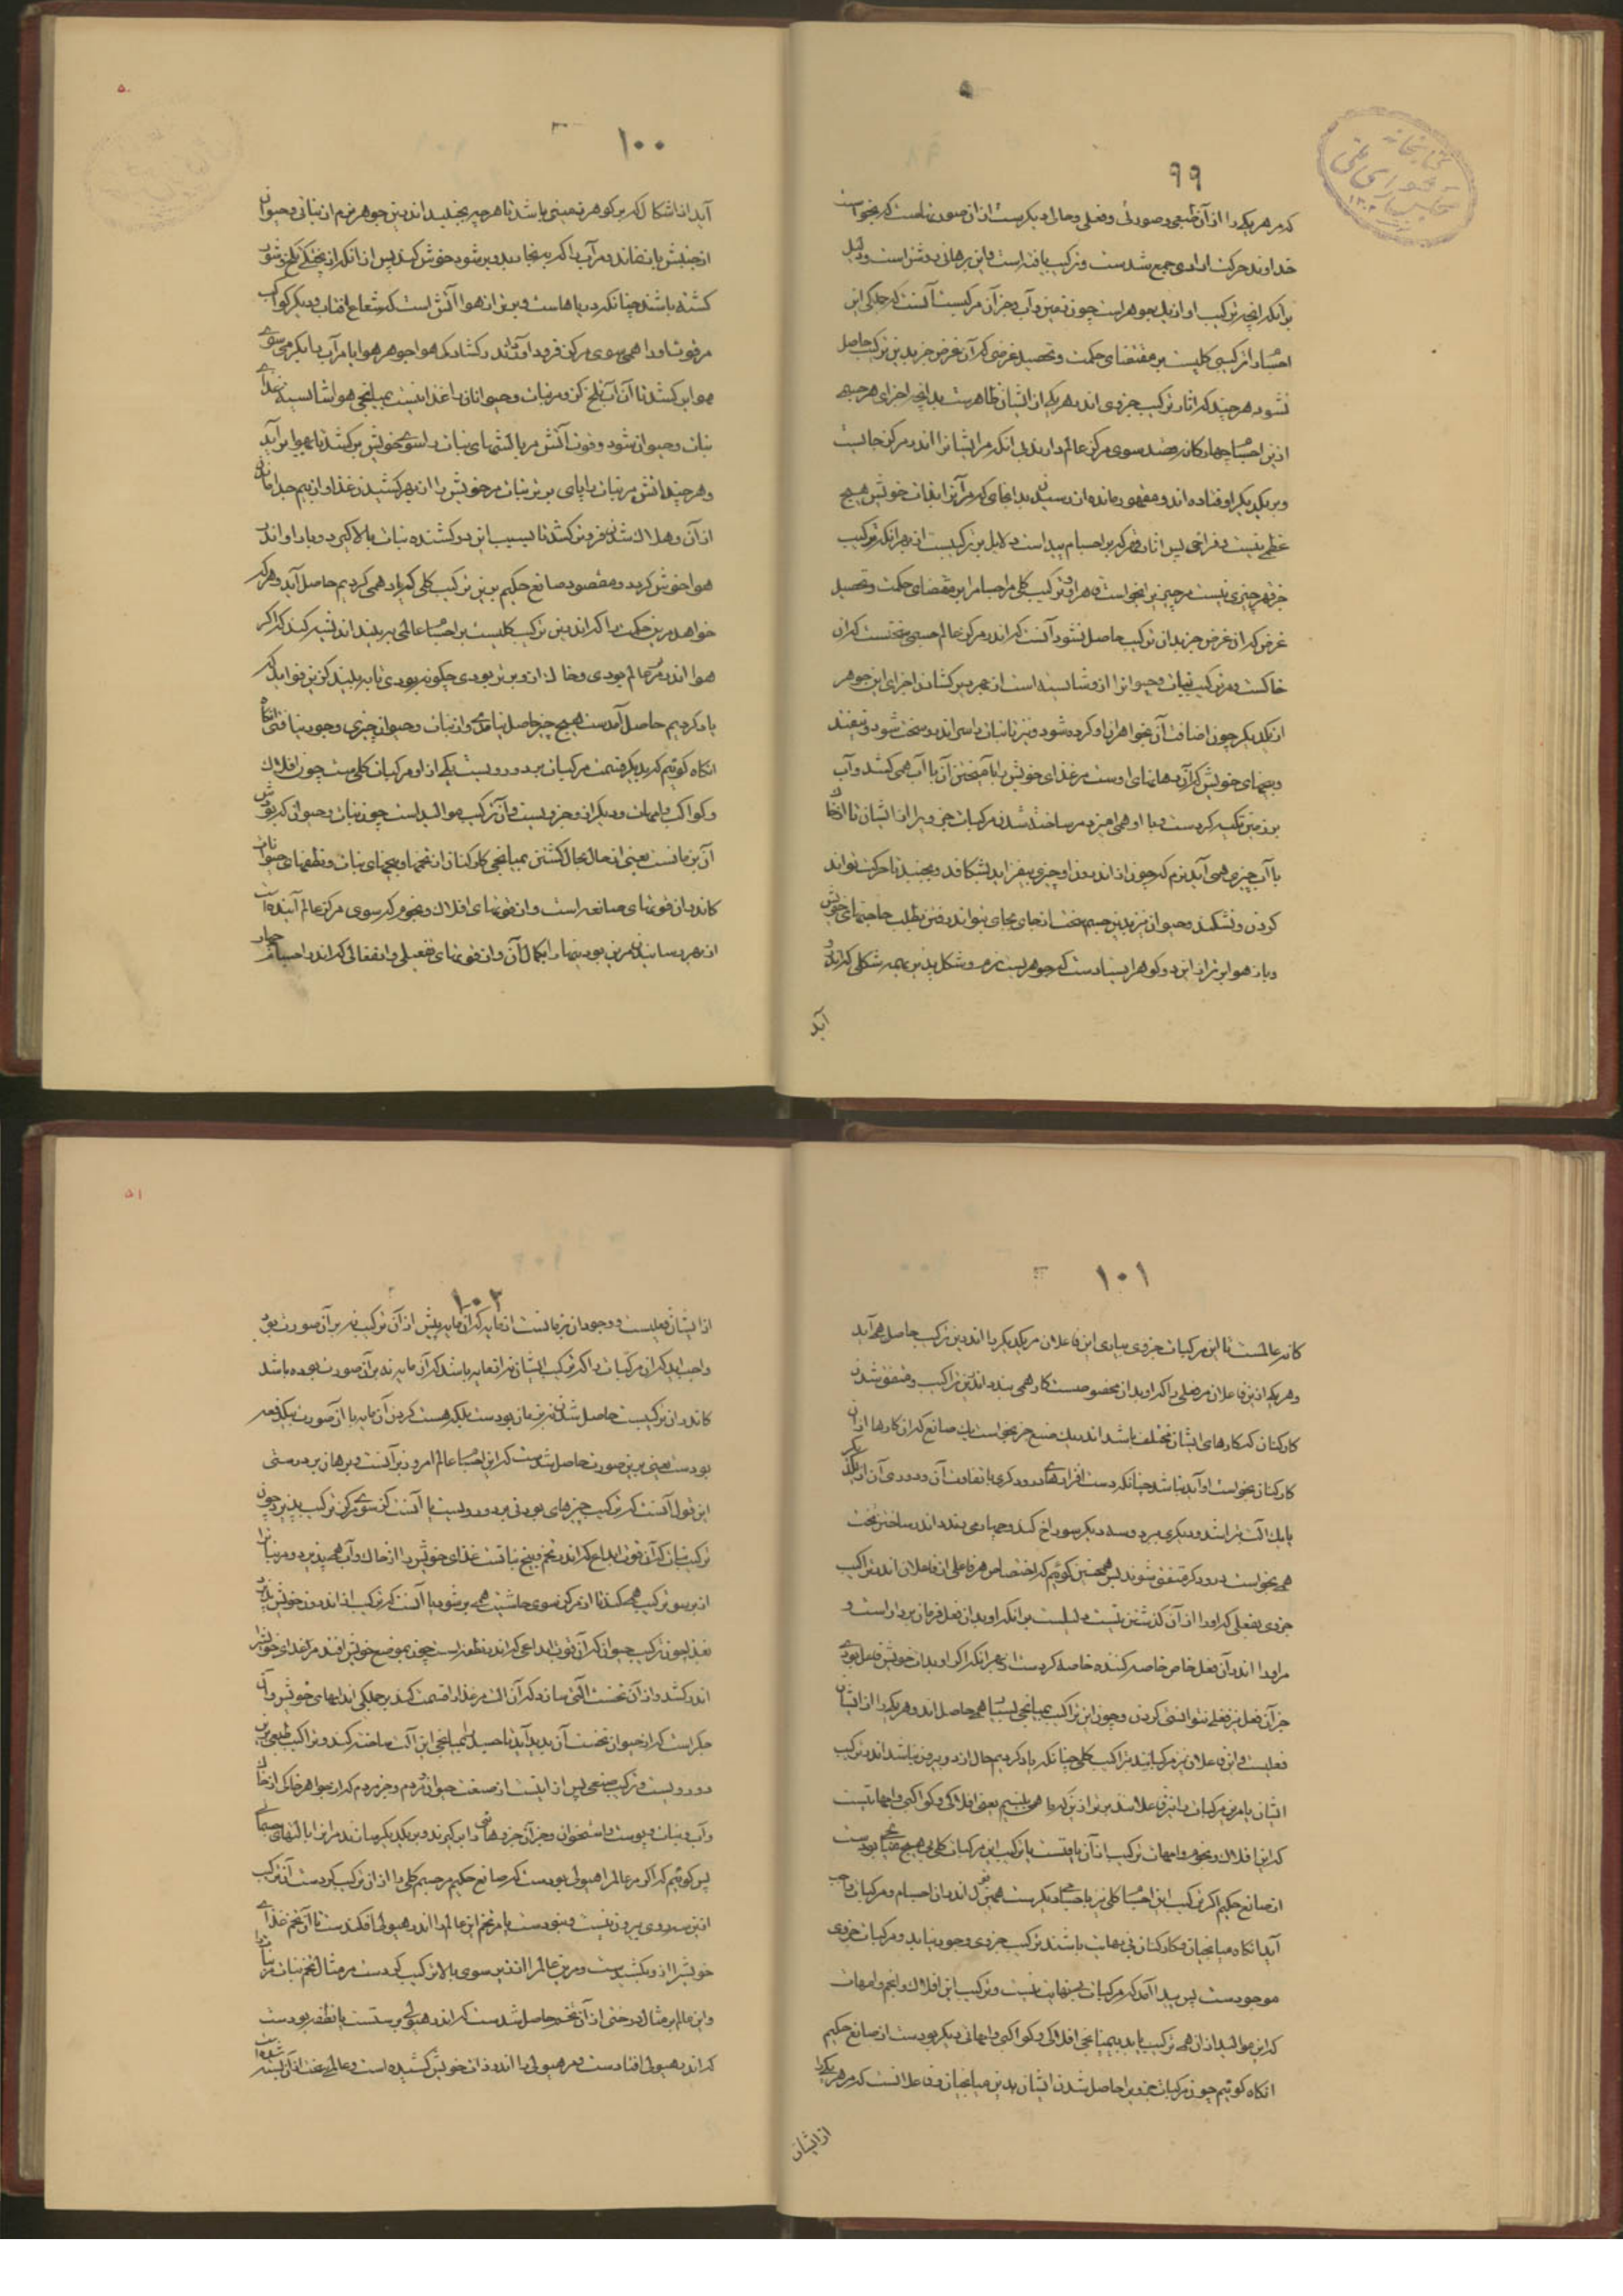 ۹۹
که مر هر یکی را از آن طبعی و صورتی و فعلی و حالی دیگر است از آن صورتهاست که بخواست
خداوند حرکت ارادی جمع شدست و ترکیب یافته است و این برهانی روشن است و دلیل
بر آنکه آنچه ترکیب او از یک جوهر است چون زمین و آب و جز آن مرکبست آنست که جملگی این
اجسام را ترکیبی کلیست بر مقتضای حکمت و تحصیل غرضی که آن غرض جز بدین ترکیب حاصل
نشود هر چند که آثار ترکیب جزوی اندر هر یکی از ایشان ظاهر است بدانچه اجزای هر جسمی
ازین اجسام چهارگانه قصد سوی مرکز عالم دارند بی آنکه مر ایشان را اندر مرکز جایست
و بر یکدیگر اوفتاده اند و مقهور مانده از رسیدن بدانجای که مر آن را بذات خویش هیچ
عظمی نیست و فراخی پس آثار قهر که بر اجسام پیداست دلایل ترکیبست از بهر آنکه ترکیب
جز قهر چیزی نیست مر چیز را بخواست قاهر او و ترکیب کلی مر اجسام را بر مقتضای حکمت و تحصیل
غرض که آن غرض جز بدان ترکیب حاصل نشود آنست که اندر مرکز عالم جسمی سخت است که آن
خاکست و مر ترکیب نبات و حیوان را او شایسته است از بهر بر گشادن اجزای این جوهر
از یکدیگر چون اضافت آن بجواهر یار او کرده شود و نیز تا نبات را سر اندرو سخت شود و نیفتد
و بیخهای خویش که آن دهانهای اوست مر غذای خویش را بآمیختن آن با آب همی کشد و آب
برزمین تکیه کردست و با او همی آمیزد مر ساخته شدن مرکبات جزوی را از ایشان تا از خاک
با آب چیزی همی آید نرم که چون از اندرون او چیزی بیفزاید بشکافد و بجنبد تا حرکت تواند
کردن و نشکند و حیوان نیز بدین جسم سخت از جای بجای بتواند رفتن بطلب حاجتهای خویش
و باز هوا برتر از این دو گوهر ایستادست که جوهریست نرم و شکل پذیر بهمه شکلی که اندرو
آید
۱۰۰
آید از اشکال که برو گوهر زمینی باشد تا هر چه بجنبد اندرین جوهر نرم از نباتی و حیوان
از جنبش باز نماند و مر آب را که ببخار بدو بر شود خوش کند پس از آنکه از پختگی تلخ و شور
گشته باشد چنانکه دریاهاست و برتر از هوا آتش است که شعاع آفتاب و دیگر کواکب
مر قوتها و را همی سوی مرکز فرود آوردند
هوا بر کشد تا آن آب تلخ کز و مر نبات و حیوانات را غذا نیست بمیانجی هوا شایسته غذای
نبات و حیوان شود و قوت آتش مر بالشهای نبات را سوی خویش بر کشد تا بهوا بر آید
و هر چند آتش مر نبات را
از آن و هلاک شدن فرو تن کشد تا بسبب این دو کشنده نبات بالا گیرد و بار او اندر
هوا خوش گردد و مقصود صانع حکیم برین ترکیب کلی که یاد همی کردیم حاصل آید و هر که
خواهد مر این حکمت را که اندرین ترکیب کلیست بر اجسام عالمی به بیند اندیشه کند که اگر
هوا اندر مرکز عالم بودی و خاک از او برتر بودی چگونه بودی تا به بیند کزین فواید که
یاد کردیم حاصل آمدست هیچ چیز حاصل نیامدی و از نبات و حیوان چیزی وجود نیافتی آنگاه
آنگاه گوئیم که بدیگر قسمت مرکبات بر دو رویست یکی از او مرکبات کلیست چون افلاک
و کواکب و امهات و دیگر از او جزویست و آن ترکیب موالید است چون نبات و حیوان که بودش
آن بزمانست یعنی از حال بحال گشتن بمیانجی کارکنان از تخمها و بیخهای نبات و نطفهای حیوانات
کاندر آن قوتهای صانعه است و از قوتهای افلاک و نجوم که سوی مرکز عالم آینده است
از بهر رسانیدن مرین بودنیها را بکمال آن و از قوتهای تفعیلی و انفعالی که اندر اجسام چهار
۱۰۱
گانه عالمست تا این مرکبات جزوی بیاری این فاعلان مر یکدیگر را اندرین ترکیب حاصل همی آید
و هر یک ازین فاعلان مر فعلی را که او بدان مخصوصست کار همی بندد اندرین تراکیب و متفق شدن
کارکنان که کارهای ایشان مختلف باشد اندر یک صنع جز بخواست یک صانع که آن کارها از آن
کارکنان بخواست او آید نباشد چنانکه دست افزارهای درودگری با تفاوت آن و دوری آن از یکدیگر
تا یک آلت بتراشد و دیگری ببرد و سه دیگر سوراخ کند و چهارمی بندد اندر ساختن تخت
همی بخواست درودگر متفق شوند پس همچنین گوئیم که اختصاص هر فاعلی از فاعلان اندر تراکیب
جزوی بفعلی که او را از آن گذشتن نیست دلیلست بر آنکه او بدان فعل فرمان بردار است و
مر او را اندر آن فعل خاص خاصه کننده خاصه کردست از بهر آنکه اگر او بذات خویش فاعل بودی
جز آن فعل نیز فعلی بتوانستی کردن و چون این تراکیب بمیانجی بسیار همی حاصل اند و هر یکی را از ایشان
فعلیست و این فاعلان نیز مرکبانند بتراکیب کلی چنانکه یاد کردیم حال از دو بیرون نباشد اندر ترکیب
ایشان یا مر این مرکبات را نیز فاعلانند برتر از این که ما همی بینیم یعنی افلاکی و کواکبی و امهاتیست
که این افلاک و نجوم و امهات ترکیب از آن یافتست یا ترکیب این مرکبات کلی بی هیچ میانجی بودست
از صانع حکیم اگر ترکیب این اجسام کلی نیز باجسام دیگر است همین قول اندر آن اجسام و مرکبان واجب
آید آنگاه میانجیان و کارکنان بی نهایت باشند و ترکیب جزوی وجود نیابد و مرکبات جزوی
موجودست پس پیدا آمد که مر مرکبات بی نهایت نیست و ترکیب این افلاک و انجم و امهات
که این موالید از آن همی ترکیب یابد بمیانجی افلاکی و کواکبی و امهاتی دیگر بودست از صانع حکیم
آنگاه گوئیم چون مرکبات جزوی را حاصل شدن ایشان بدین میانجیان و فاعلانست که مر هر یکی را
از ایشان
۱۰۲
از ایشان فعلیست و وجود آن بزمانست از مایه که آن مایه پیش از آن ترکیب نه بر آن صورت بود
واجب آید که آن مرکبات را که ترکیب ایشان نه از مایه باشد که آن مایه نه بر آن صورت بوده باشد
کاندر آن ترکیبست حاصل شدن نه بزمان بودست بلکه هست کردن آن مایه با آن صورت بیکدفعه
بودست یعنی برین صورت حاصل شدست که این اجسام عالم امروز بر آنست و برهان بر درستی
این قول آنست که ترکیب چیزهای بودنی بر دو رویست یا آنست کز سوی مرکز ترکیب پذیرد چون
ترکیب نبات که آن قوت ابداع که اندر تخم و بیخ نباتست غذای خویش را از خاک و آب همی پذیرد و مر نبات را
از برسو ترکیب همی کند تا از مرکز سوی حاشیت همی بر شود یا آنست که ترکیب از اندرون خویش پذیرد
بغذا چون ترکیب حیوان که آن قوت ابداعی که اندر نطفه است چون بموضع خویش افتد مر غذای خویش را
اندر کشد و از آن نخست آلتی سازد که آن آلت مر غذا را قسمت کند بر جملگی اندامهای خویش و آن
جگر است که از حیوان نخست آن پدید آید تا جسد را بمیانجی این آلت ساخته کند و تراکیب طبیعی برین
دو رویست و ترکیب صنعی پس از اینست از صنعت حیوان مردم و جز مردم که از جواهر خاکی از خاک
و آب و نبات و پوست و استخوان و جز آن جزوهائی را برگیرند و بر یکدیگر بسازند مر آن را بآلتهای جسمانی
پس گوئیم که اگر مر عالم را هیولی بودست که صانع حکیم مر جسم کلی را از آن ترکیب کردست آن ترکیب
ازین سه روی بیرون نیست و نبودست یا مر تخم این عالم را اندر هیولی افکندست تا آن تخم غذای
خویش را ازو بکشیدست و مر این عالم را از زیر سوی بالا ترکیب کردست مر مثال تخم نبات مر نبات را
و این عالم بر مثال درختی از آن تخم حاصل شدست که اندر هیولی برستست یا نطفه بودست
که اندر هیولی افتادست و مر هیولی را اندر ذات خویش کشیده است و عالم